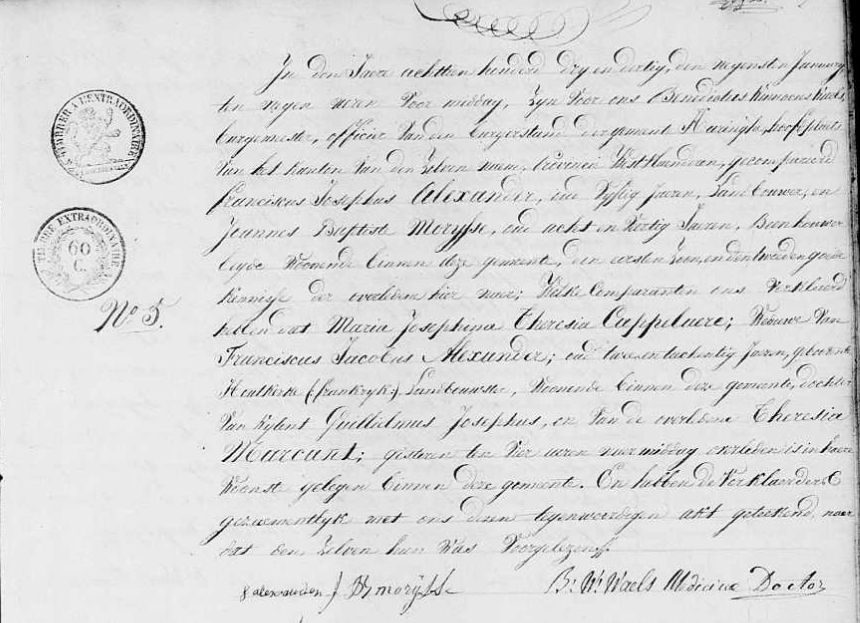 In den Jaere achttien honderd dry en dertig, den negensten January
ten negen uren voor middag, zyn voor ons Benedictus
burgemeester, officier van den burgerstand der gemeente Haringhe, hoofdplaets
van het kanton van den zelven naem, provincie Westvlaenderen, gecompareerd
Franciscus Josephus Alexander, oud vyftig Jaeren, Landbouwer, en
Joannes Baptiste Morysse, oud acht en veertig Jaeren, Beenhouwer
beyde woonende binnen deze gemeente, den eersten zoon, en den tweeden goede
kennisse der overledene hier naer; Welke Comparanten ons verklaerd
hebben dat Maria Josephina Theresia Cappelaere; Weduwe van
Franciscus Jacobus Alexander; oud twee en tachentig Jaeren, geboren te
Houtkerke (frankryk) Landbouwster, woonende binnen deze gemeente, dochter
van wylent Guillielmus Josephus, en van de overledene Theresia
Marcant; gisteren ten vier uren naermiddag overleden is in haere
Woonste gelegen binnen deze gemeente. En hebben de Verklaerders
gezaementlyk met ons dezen tegenwoordigen akt geteekend, naer
dat den zelven hun was voorgelezen.
TIMBRER A L'EXTRAORDINAIRE
TIMBRE EXTRAORDINAIRE
60
C.
N° 5.
f alexander J B morysse B. W. Waels Medicinae Doctor